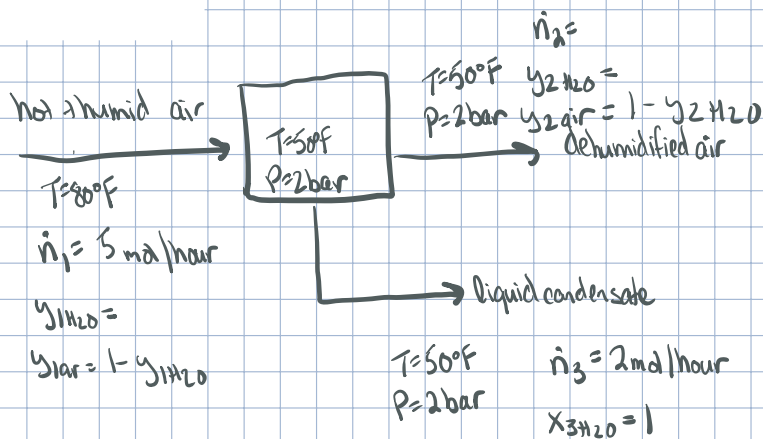 hot + humid air
T=80°F
ṅ₁ = 5 mol/hour
y₁H₂O =
y₁air = 1 - y₁H₂O
T=50°F
P=2bar
T=50°F
P=2bar
ṅ₂ =
y₂H₂O =
y₂air = 1 - y₂H₂O
dehumidified air
liquid condensate
T=50°F
P=2bar
ṅ₃ = 2 mol/hour
x₃H₂O = 1